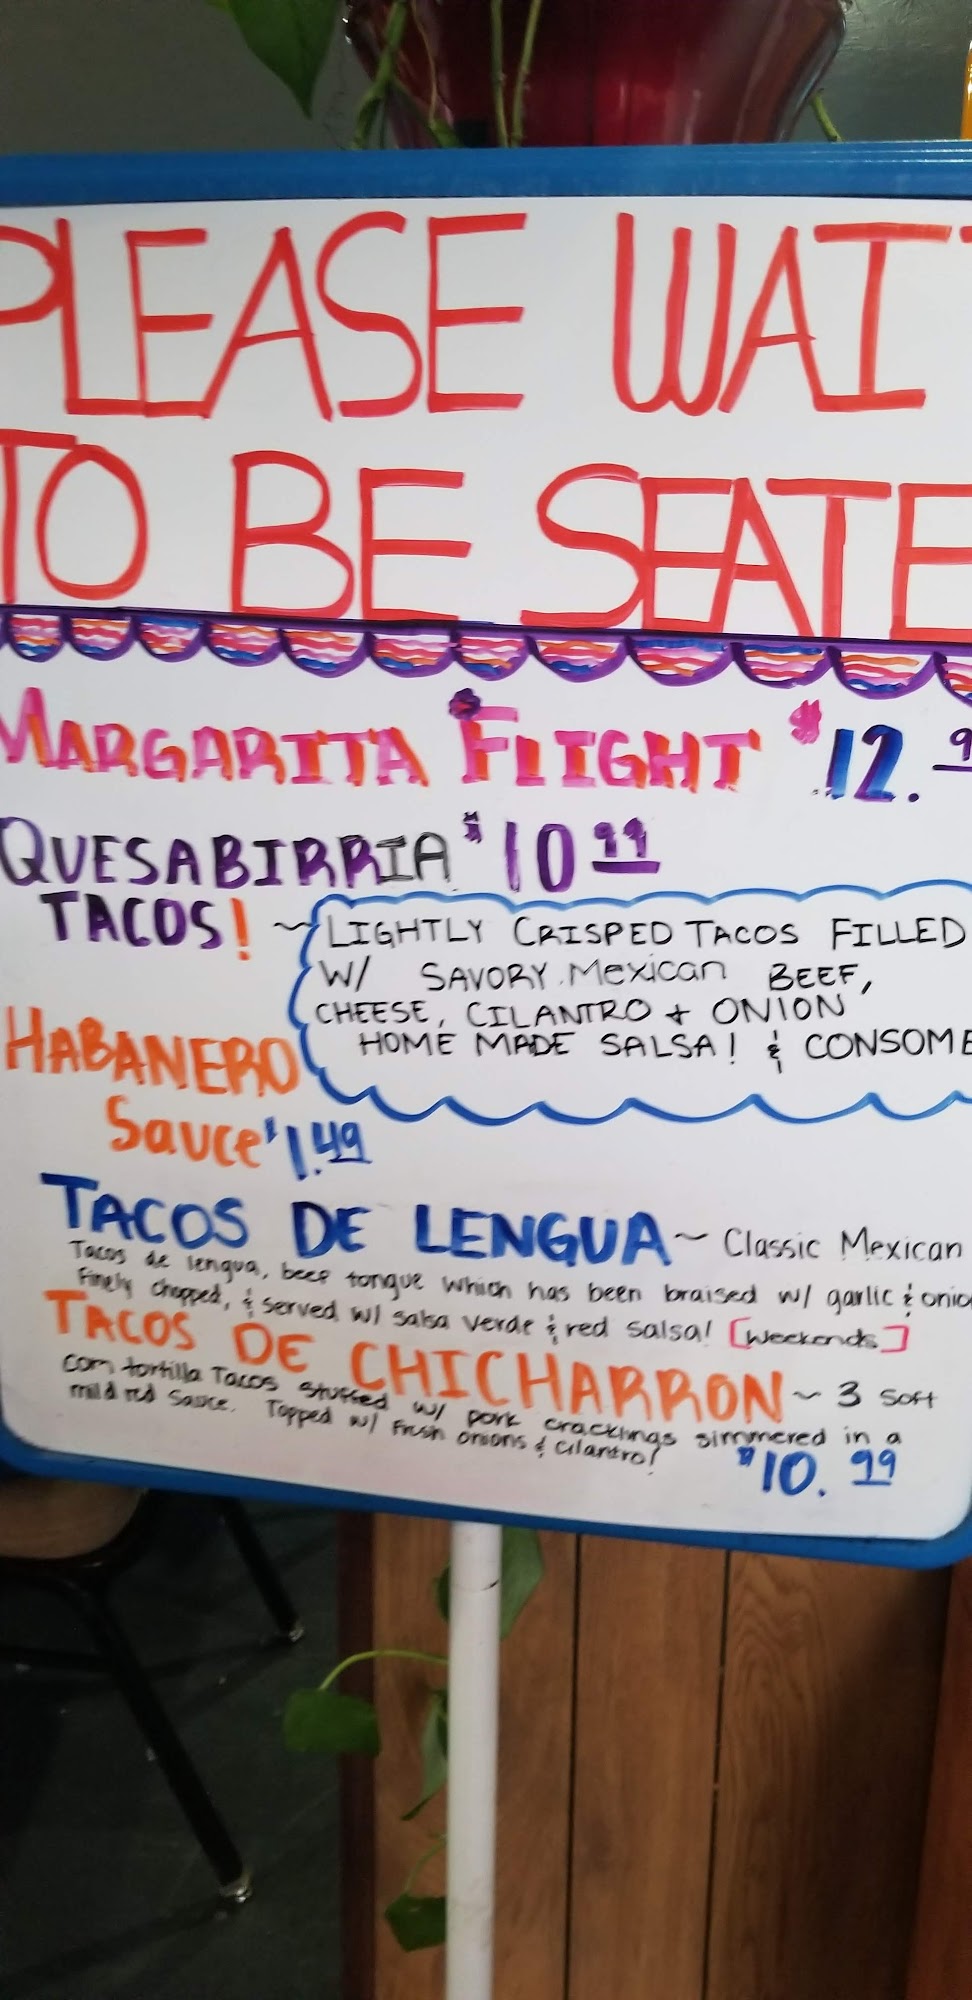 PLEASE WAIT
TO BE SEATE
MARGARITA FLIGHT $12.9
QUESABIRRIA $10 99
TACOS! ~ LIGHTLY CRISPED TACOS FILLED
W/ SAVORY Mexican BEEF,
CHEESE, CILANTRO + ONION
HOME MADE SALSA! & CONSOME
HABANERO
Sauce $1.49
TACOS DE LENGUA ~ Classic Mexican
Tacos de lengua, beef tongue which has been braised w/ garlic & onio
Finely chopped, & served w/ salsa verde & red salsa! [Weekends]
TACOS DE CHICHARRON ~ 3 soft
corn tortilla Tacos stuffed w/ pork cracklings simmered in a
mild red sauce. Topped w/ Fresh onions & cilantro!
$10.99